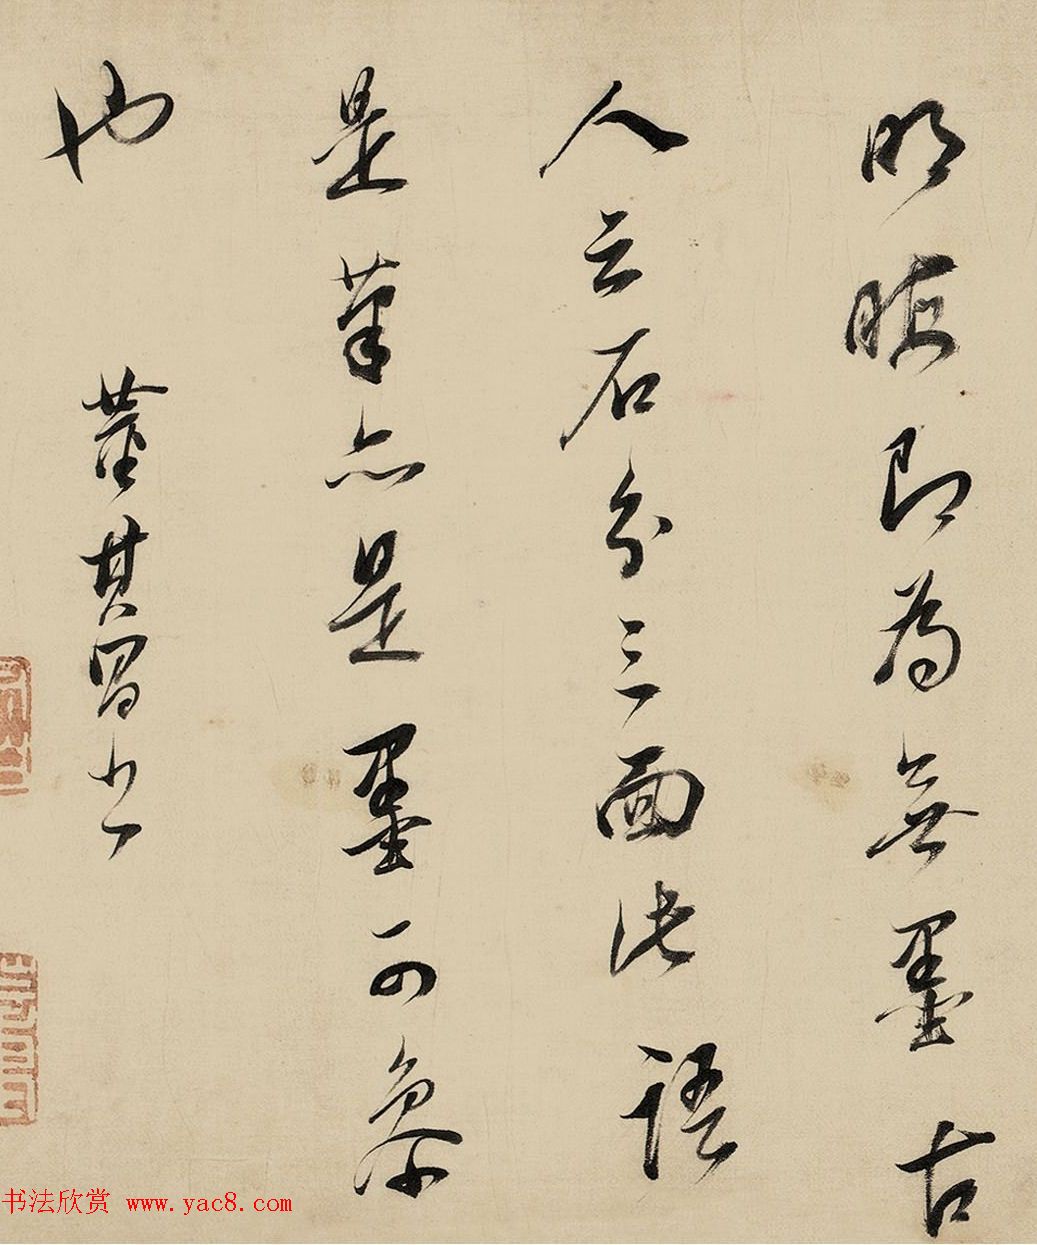 明晦即為無墨古
人云石分三面此語
是筆亦是墨可參
也
董其昌書
书法欣赏 www.yac8.com